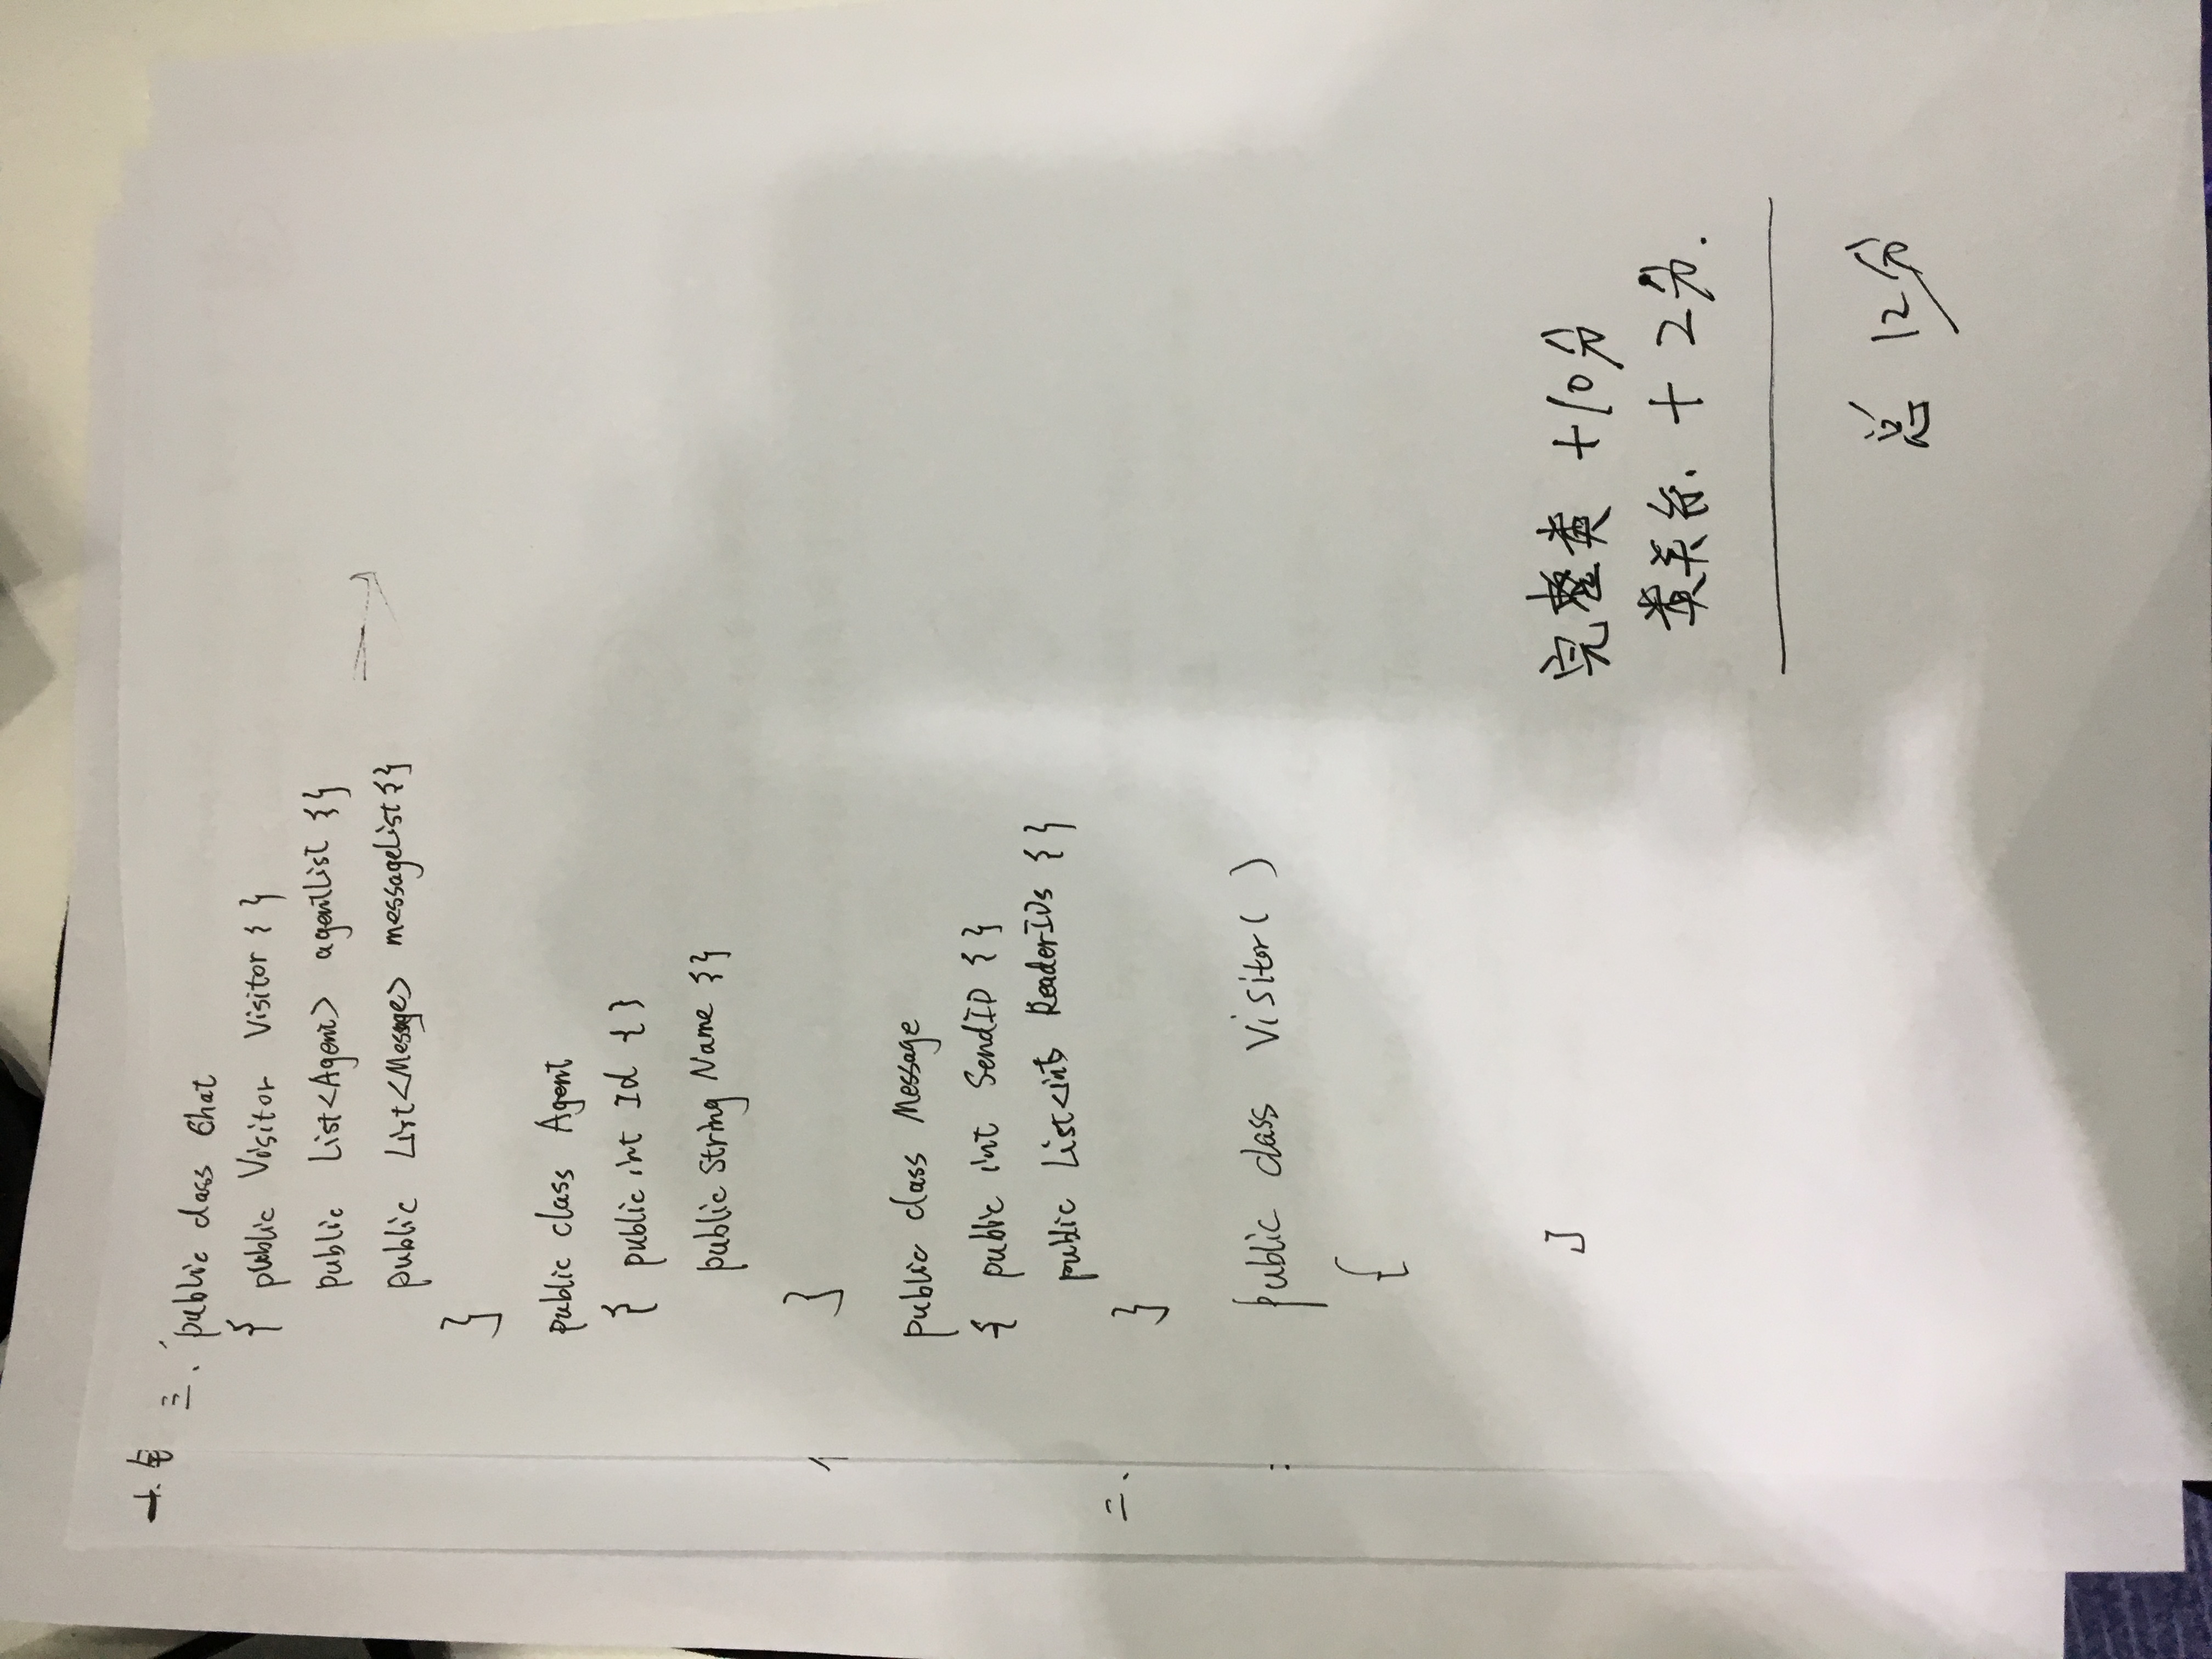 三、 public class Chat
{ public Visitor Visitor { }
public List<Agent> agentList {}
public List<Message> messageList {}
}
public class Agent
{ public int Id { }
public String Name {}
}
public class Message
{ public int SendID { }
public List<int> ReaderIDs { }
二、
}
public class Visitor( )
{
}
完整类 +10分
类关系. + 2分.
总 12分